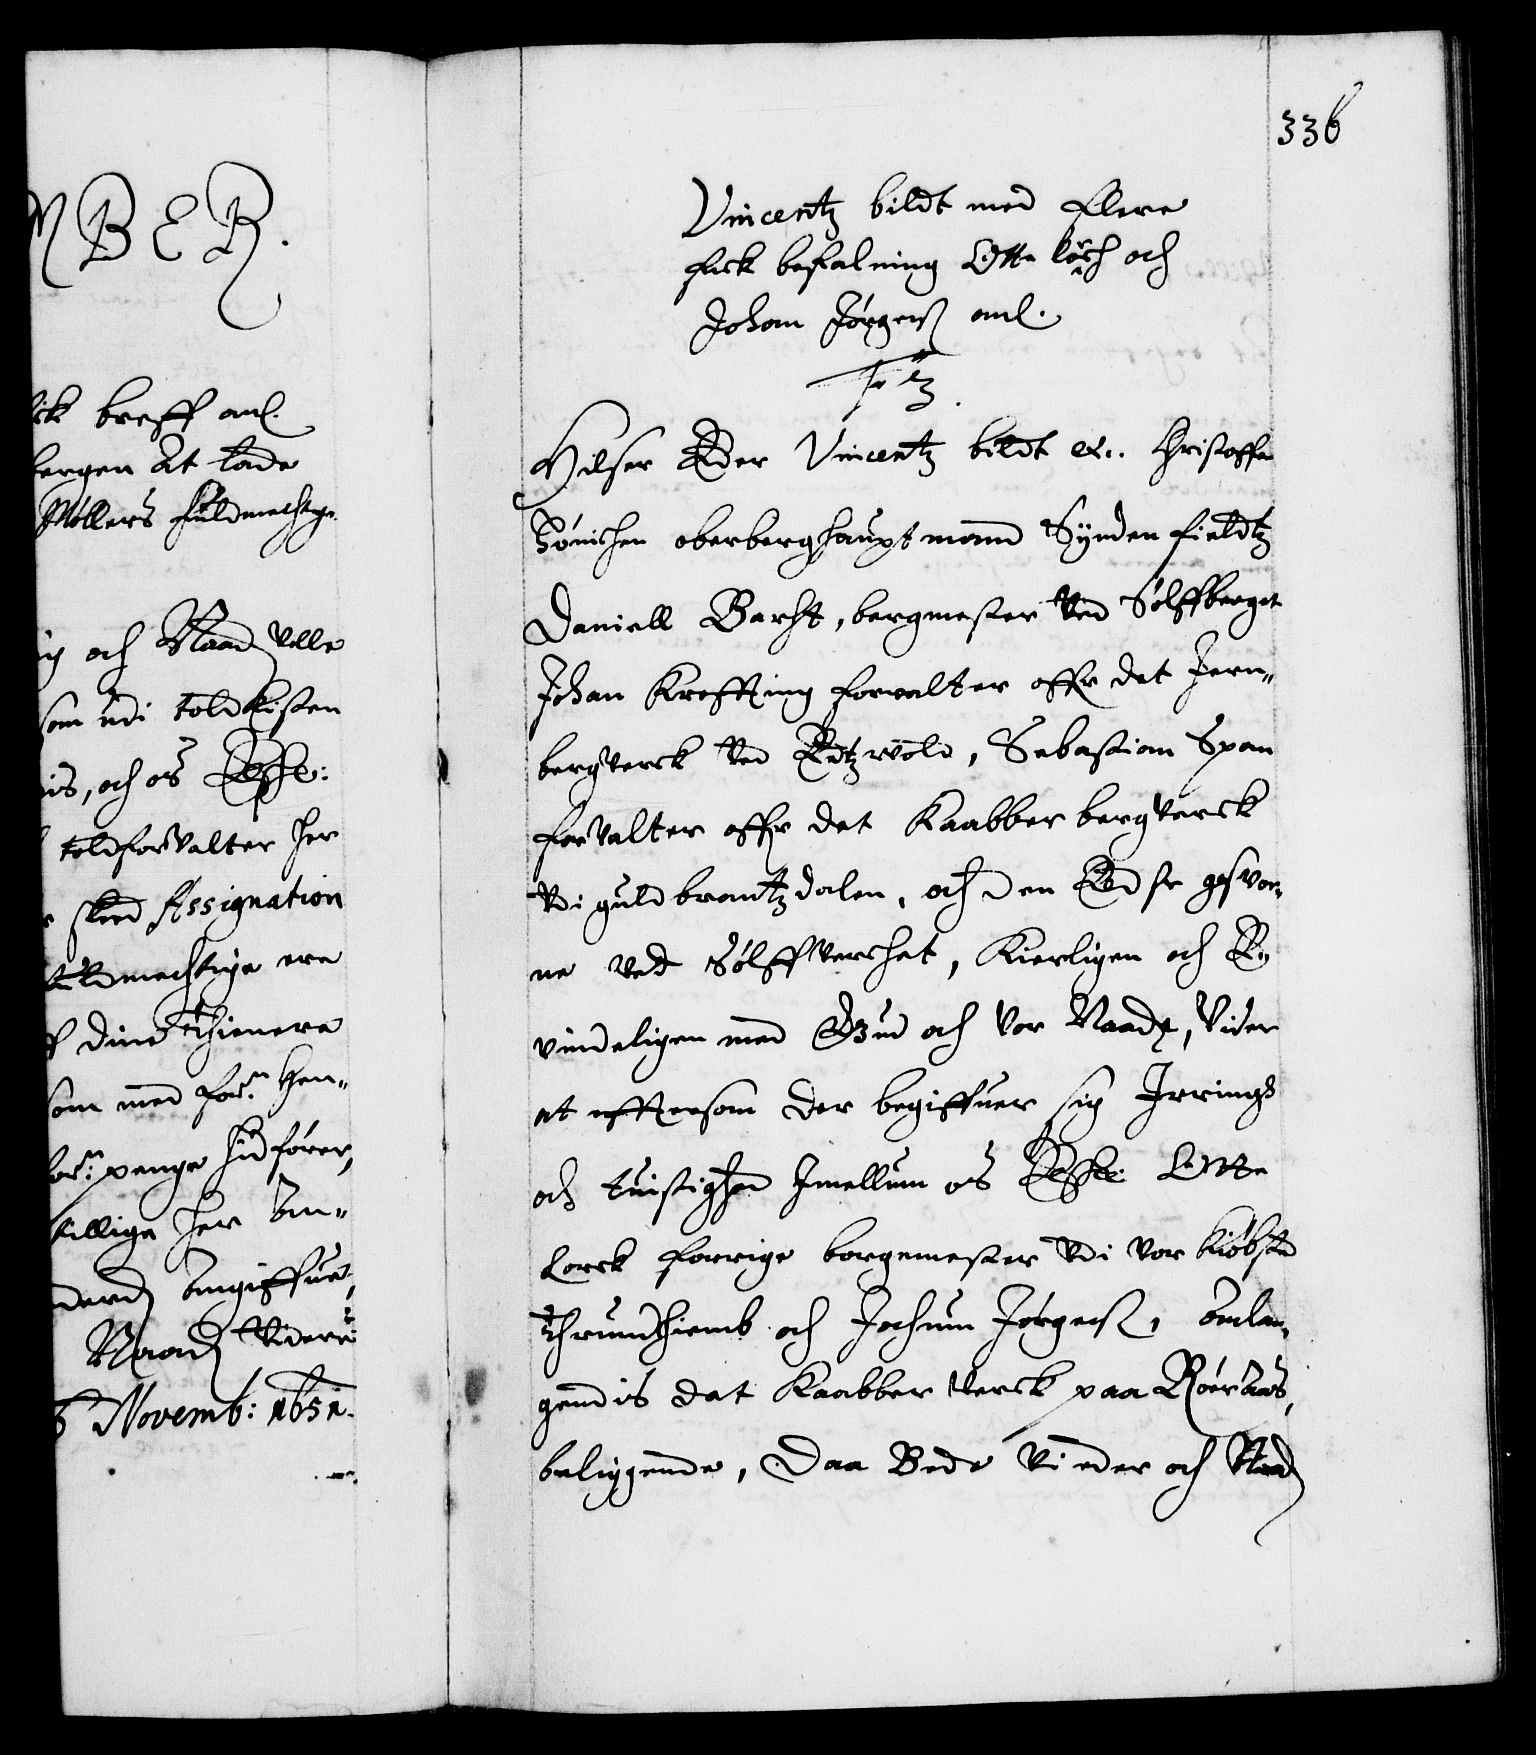 MBER.
ick breff anl.
bergen At lade
Møllers fuldmechtge.
ig och Naad ville
som udi toldkisten
is, och os Elsskel:
toldforvalter her
skeed Assignation
fuldmechtige era
ff dine thienere
som med for.ne Hen-
for.ne penge hid fører,
billige her An-
anngiffuet,
Naad Videre
Novemb: 1651.
336
Vincentz bildt med flere
fick befalning Otte lorch och
Johan Jørgenß anl.
F 3.
Hilser Eder Vincentz bildt etc. Christoffer
Sönichen oberberghauptmand Synden fieldtz
Daniell Barht, bergmester Ved Sølffberget
Johan Kreffting forvalter offr det Jern-
bergverck Ved Edtzvold, Sebastian Span
forvalter offr det Kaabber bergverck
Vdi guldbrantzdalen, och den Edsr gesvor-
ne ved Sølffverchet, Kierligen och E-
vindeligen med Gud och Vor Naade, Vider
at efftersom der begiffuer sig Irrings
och tuistighed Imellum os Elsskel: Otte
Lorck forrige borgemester Vdi Vor kiøbsted
Thrundhiemb och Jochum Jørgenß, Anlan-
gendis det Kaabber Verck paa Röeraas,
beliggende, Daa Bede Vi eder och Naad